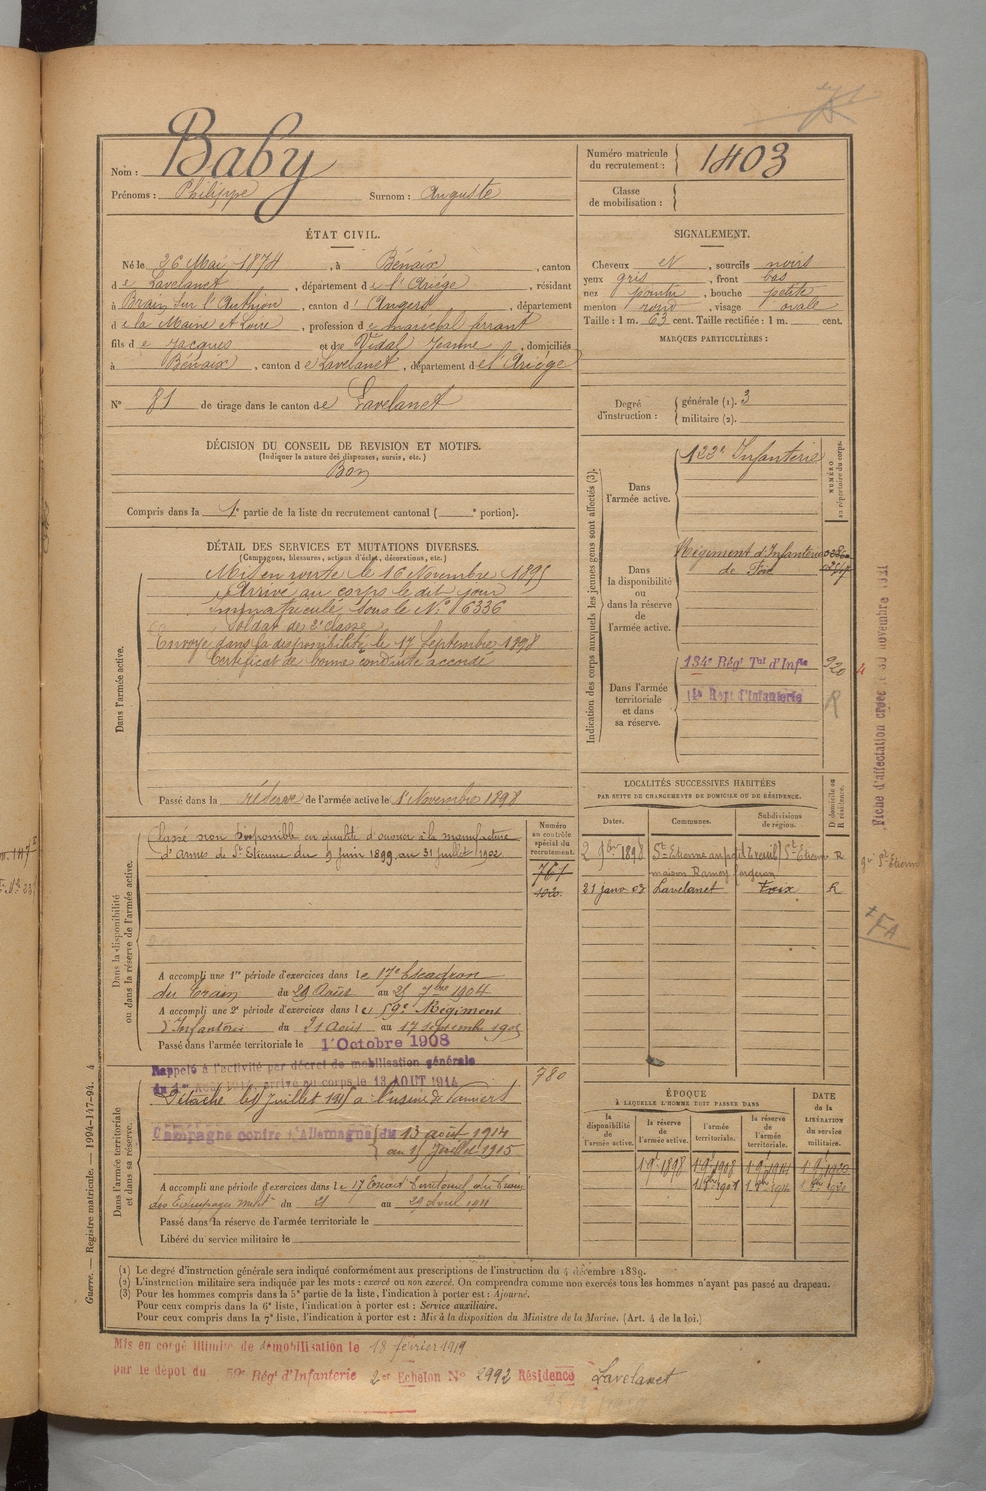 Nom : Baby
Prénoms : Philippe Surnom : Auguste
Numéro matricule du recrutement : 1403
Classe de mobilisation :
ÉTAT CIVIL.
Né le 26 Mai 1874, à Bénaix, canton
de Lavelanet, département de l'Ariège, résidant
à Brain sur l'Authion, canton d' Angers, département
de la Maine et Loire, profession de maréchal ferrant
fils de Jacques et de Vidal Jeanne, domiciliés
à Bénaix, canton de Lavelanet, département de l'Ariège
N° 81 de tirage dans le canton de Lavelanet
SIGNALEMENT.
Cheveux et, sourcils noirs
yeux gris, front bas
nez pointu, bouche petite
menton rond, visage ovale
Taille : 1 m. 63 cent. Taille rectifiée : 1 m. cent.
MARQUES PARTICULIÈRES :
Degré d'instruction : générale (1). 3
militaire (2).
DÉCISION DU CONSEIL DE REVISION ET MOTIFS.
(Indiquer la nature des dispenses, sursis, etc.)
Bon
Compris dans la 1e partie de la liste du recrutement cantonal ( e portion).
DÉTAIL DES SERVICES ET MUTATIONS DIVERSES.
(Campagnes, blessures, actions d'éclat, décorations, etc.)
Dans l'armée active.
Mis en route le 16 Novembre 1895
Arrivé au corps le dit jour
immatriculé sous le N° 6336
Soldat de 2e classe
Envoyé dans la disponibilité le 17 Septembre 1898
Certificat de bonne conduite accordé
Passé dans la réserve de l'armée active le 1er Novembre 1898
Indication des corps auxquels les jeunes gens sont affectés (3).
NUMÉRO au répertoire du corps.
Dans l'armée active.
122e Infanterie
Dans la disponibilité ou dans la réserve de l'armée active.
Régiment d'Infanterie
de Foix
Dans l'armée territoriale et dans sa réserve.
134e Régt Tal d'Infie 920
Regt d'Infanterie R
Fiche d'affectation créée le 30 novembre 1921
LOCALITÉS SUCCESSIVES HABITÉES
PAR SUITE DE CHANGEMENTS DE DOMICILE OU DE RÉSIDENCE.
Dates. Communes. Subdivisions de région. D domicile ou R résidence.
2 9bre 1898 St Etienne St Etienne R
maison Ramon
21 janv 03 Lavelanet Foix R
Dans la disponibilité ou dans la réserve de l'armée active.
Numéro au contrôle spécial du recrutement.
Classé non disponible en qualité d'ouvrier à la manufacture
d'armes de St Etienne du 9 juin 1899 au 31 juillet 1902
761
1020
A accompli une 1re période d'exercices dans le 17e Escadron
du Train du 29 Août au 25 7bre 1904
A accompli une 2e période d'exercices dans le 59e Régiment
d'Infanterie du 21 Août au 17 septembre 1905
Passé dans l'armée territoriale le 1er Octobre 1908
Dans l'armée territoriale et dans sa réserve.
780
Rappelé à l'activité par décret de mobilisation générale
arrivé au corps le 13 AOUT 1914
Détaché le Juillet 1915 à l'usine de
Campagne contre l'Allemagne du 13 août 1914
au 15 Juillet 1915
A accompli une période d'exercices dans le 17 Territorial du Train
des Equipages milit du 21 au 29 Avril 1911
Passé dans la réserve de l'armée territoriale le
Libéré du service militaire le
ÉPOQUE
À LAQUELLE L'HOMME DOIT PASSER DANS
la disponibilité de l'armée active. la réserve de l'armée active. l'armée territoriale. la réserve de l'armée territoriale.
DATE de la LIBÉRATION du service militaire.
1 9e 1898 1 9e 1908 1 9e 1914 1 9e 1920
(1) Le degré d'instruction générale sera indiqué conformément aux prescriptions de l'instruction du 4 décembre 1889.
(2) L'instruction militaire sera indiquée par les mots : exercé ou non exercé. On comprendra comme non exercés tous les hommes n'ayant pas passé au drapeau.
(3) Pour les hommes compris dans la 5e partie de la liste, l'indication à porter est : Ajourné.
Pour ceux compris dans la 6e liste, l'indication à porter est : Service auxiliaire.
Pour ceux compris dans la 7e liste, l'indication à porter est : Mis à la disposition du Ministre de la Marine. (Art. 4 de la loi.)
Guerre. — Registre matricule. — 1994-147-94. 4
Mis en congé illimité de démobilisation le 18 février 1919
par le dépôt du 59e Régt d'Infanterie 2e Echelon N° 2992 Résidence Lavelanet